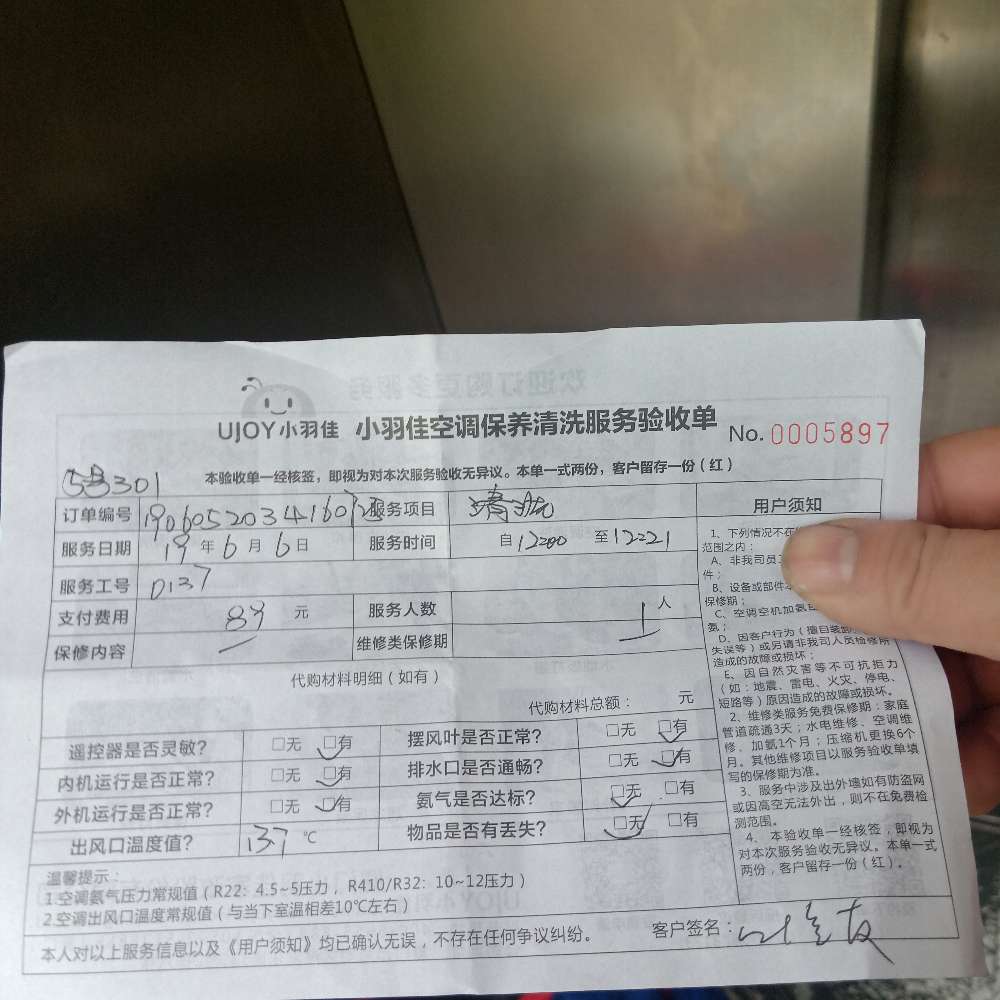 UJOY小羽佳 小羽佳空调保养清洗服务验收单 No. 0005897
301
本验收单一经核签，即视为对本次服务验收无异议。本单一式两份，客户留存一份（红）
订单编号 服务项目 清洗
服务日期 19年6月6日 服务时间 自12:00 至12:21
服务工号 0137
支付费用 89 元 服务人数 1 人
保修内容 维修类保修期
代购材料明细（如有）
代购材料总额： 元
遥控器是否灵敏? □无 □有 摆风叶是否正常? □无 □有
内机运行是否正常? □无 □有 排水口是否通畅? □无 □有
外机运行是否正常? □无 □有 氨气是否达标? □无 □有
出风口温度值? 13.7 ℃ 物品是否有丢失? □无 □有
温馨提示：
1.空调氨气压力常规值（R22：4.5~5压力，R410/R32：10~12压力）
2.空调出风口温度常规值（与当下室温相差10℃左右）
本人对以上服务信息以及《用户须知》均已确认无误，不存在任何争议纠纷。 客户签名：
用户须知
1、下列情况不在
范围之内：
A、非我司员
件；
B、设备或部件
保修期；
C、空调空机加氨
氨；
D、因客户行为（擅自装卸
失误等）或另请非我司人员检修所
造成的故障或损坏；
E、因自然灾害等不可抗拒力
（如：地震、雷电、火灾、停电、
短路等）原因造成的故障或损坏。
2、维修类服务免费保修期：家庭
管道疏通3天；水电维修、空调维
修、加氨1个月；压缩机更换6个
月。其他维修项目以服务验收单填
写的保修期为准。
3、服务中涉及出外墙如有防盗网
或因高空无法外出，则不在免费检
测范围。
4、本验收单一经核签，即视为
对本次服务验收无异议。本单一式
两份，客户留存一份（红）。